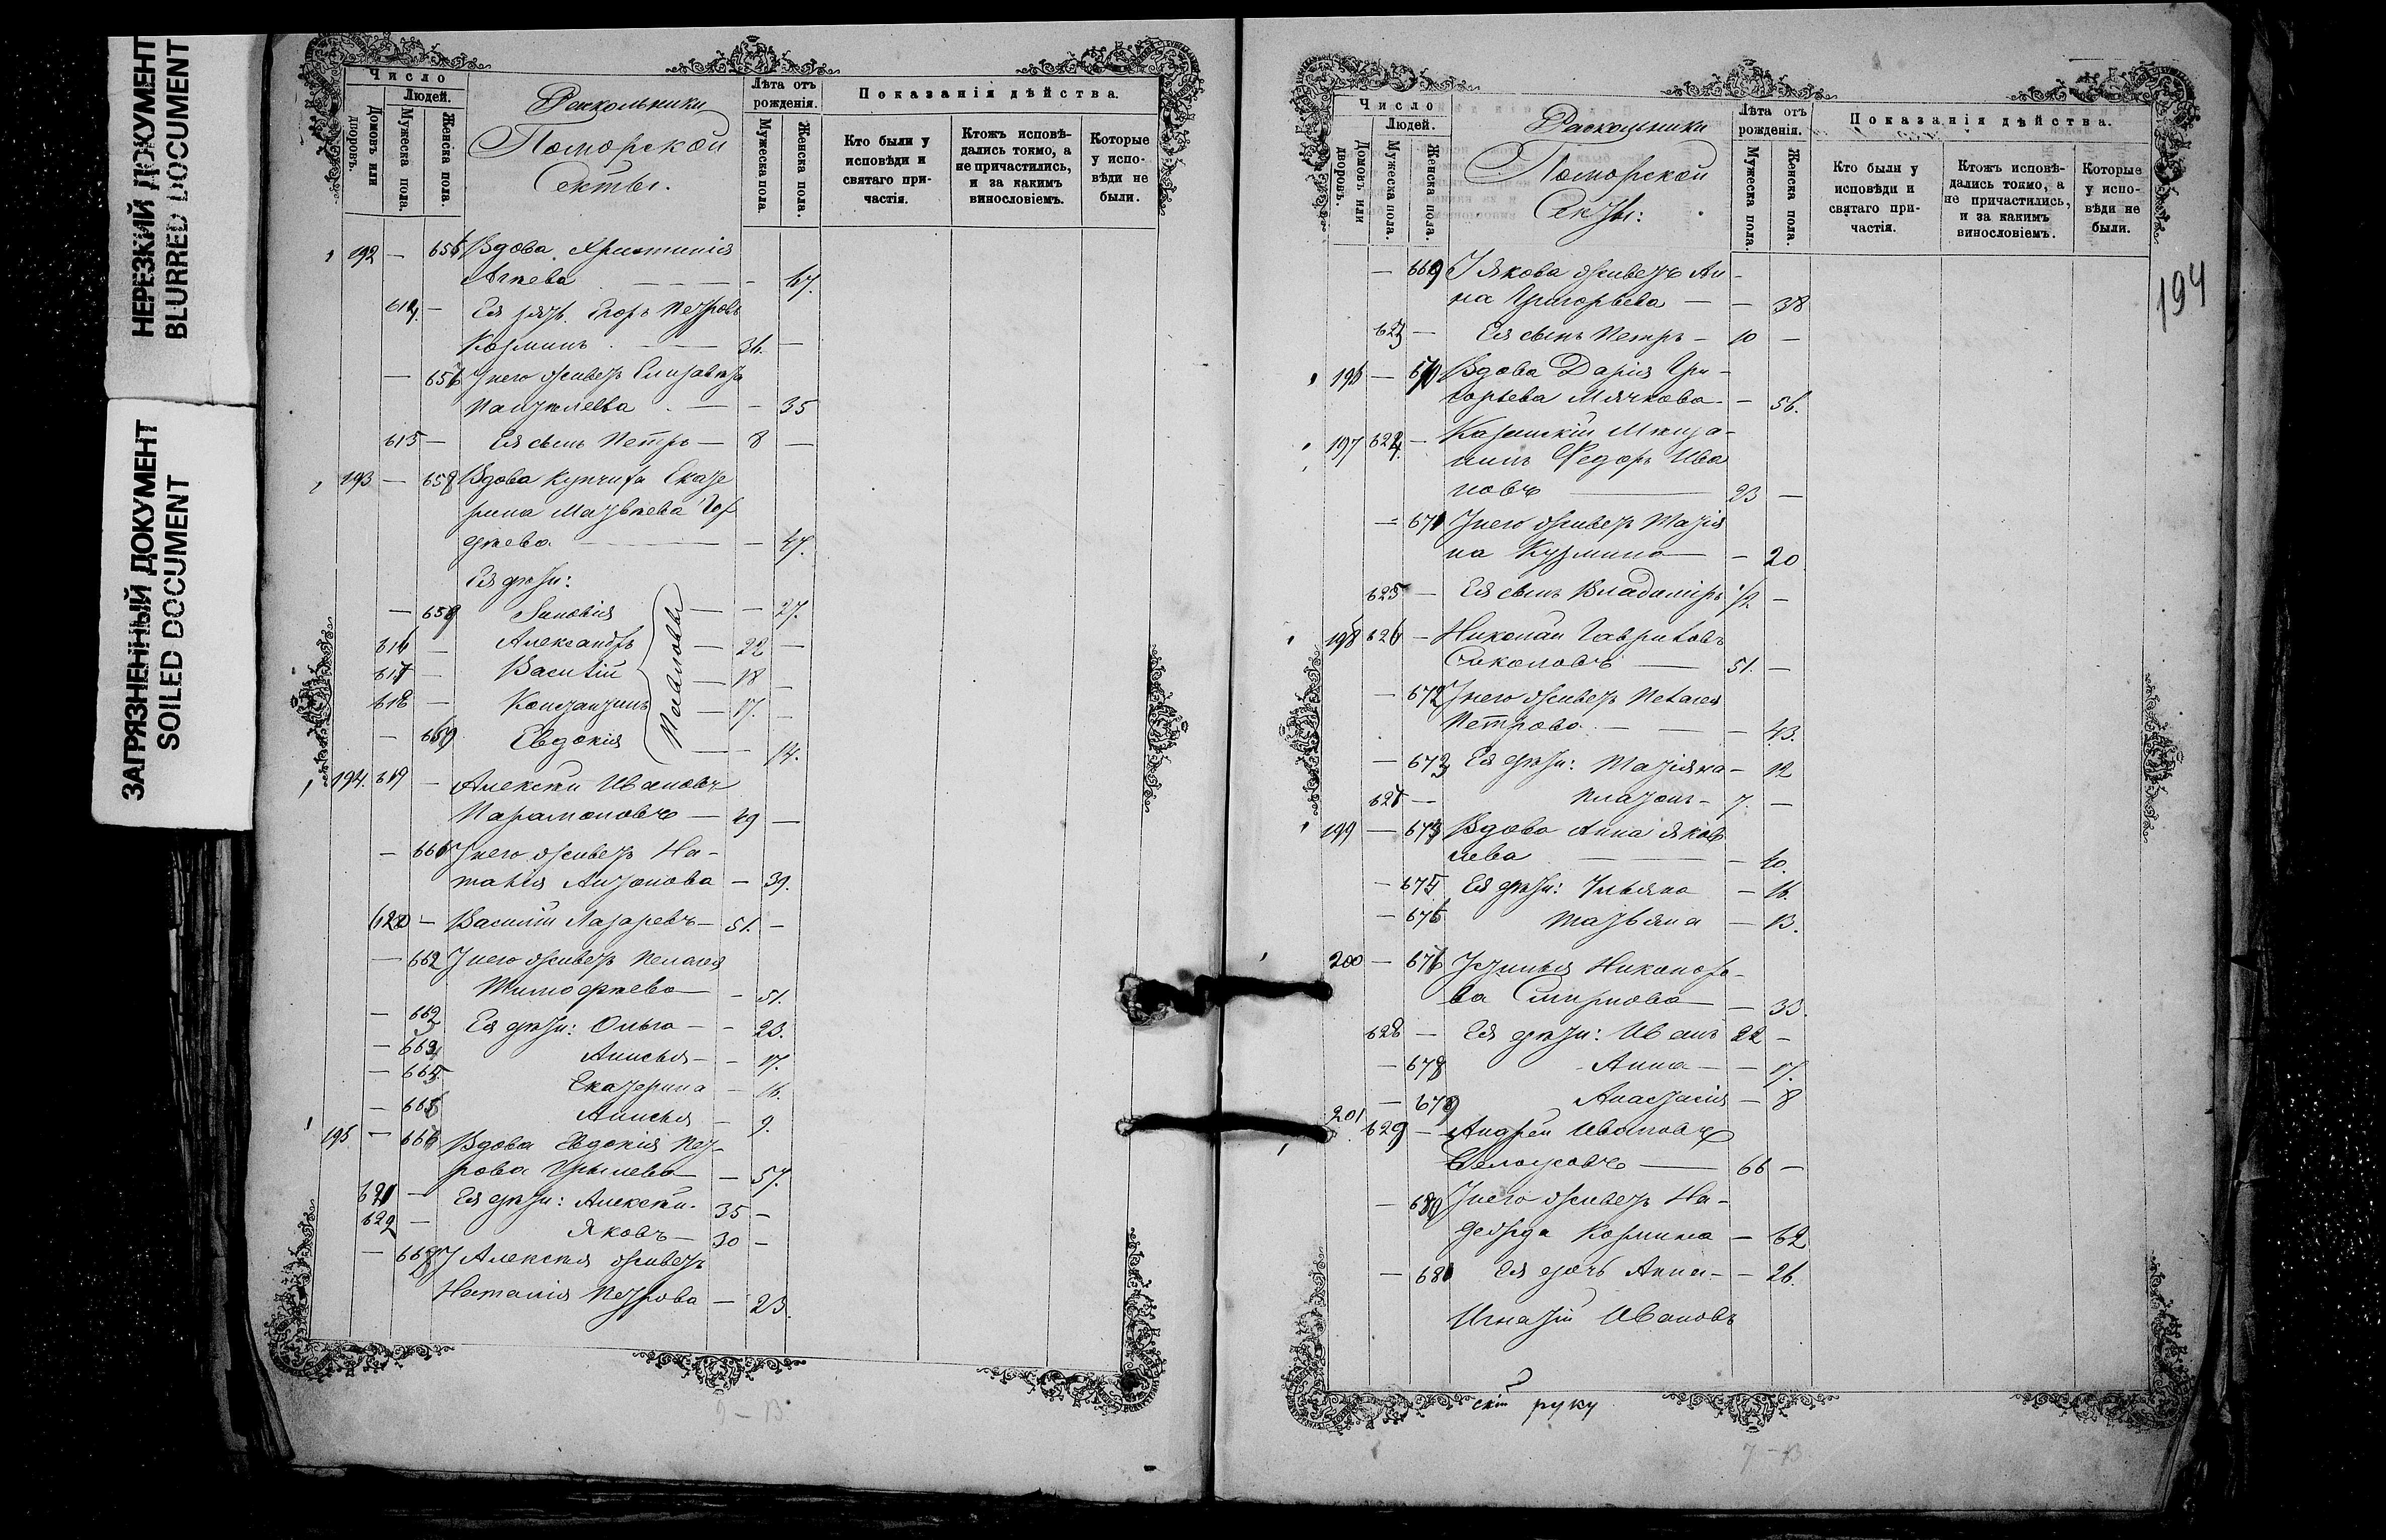 НЕРЕЗКИЙ ДОКУМЕНТ
BLURRED DOCUMENT
ЗАГРЯЗНЕННЫЙ ДОКУМЕНТ
SOILED DOCUMENT
Число
Людей.
Домовъ или дворовъ.
Мужеска пола.
Женска пола.
Раскольники
Поморской
Секты.
Лѣта отъ рожденія.
Мужеска пола.
Женска пола.
Показанія дѣйства.
Кто были у исповѣди и святаго причастія.
Ктожъ исповѣдались токмо, а не причастились, и за какимъ винословіемъ.
Которые у исповѣди не были.
192 — Вдова Христинія
— 67.
614. — Ея зять Егоръ Петровъ
Козминъ — 36. —
— 656 У него живетъ Елизавета
Пантелеева — — 35
615 — Ея сынъ Петръ — 8 —
193 — 658 Вдова Купчиха Екате
рина Матвѣева
— — 47.
Ея дѣти:
— 659 Зиновія — — 27.
616 — Александръ — 22 —
617 — Василій — 18 —
618 — Константинъ — 17. —
— Евдокія — — 14.
Ивановы
194. 619 — Алексѣй Ивановъ
Парамоновъ — 49 —
— 661 У него живетъ На-
талія Антонова — 39.
620 — Василій Лазаревъ — 51. —
— 662 У него живетъ Пелагея
Тимофеева — 51.
— Ея дѣти: Ольга — — 23.
— Анисья — — 17.
— Екатерина — 16.
— Анисья — 9.
195 — 666 Вдова Евдокія Пет-
рова — 57.
621 — Ея дѣти: Алексѣй. 35 —
622 — Яковъ — 30 —
— 668 У Алексѣя живетъ
Наталія Петрова — 23.
9 — 13
Число
Людей.
Домовъ или дворовъ.
Мужеска пола.
Женска пола.
Раскольники
Поморской
Секты:
Лѣта отъ рожденія.
Мужеска пола.
Женска пола.
Показанія дѣйства.
Кто были у исповѣди и святаго причастія.
Ктожъ исповѣдались токмо, а не причастились, и за какимъ винословіемъ.
Которые у исповѣди не были.
194
— 669 У Якова живетъ Ан-
на Григорьева — — 38
623 — Ея сынъ Петръ — 10 —
196 — 670 Вдова Дарія Гри-
горьева Мячкова — — 56.
197 624 — Казанскій Мѣща-
нинъ Федоръ Ива
новъ — 23 —
— 671 У него живетъ Татія
на Кузмина — — 20
625 — Ея сынъ Владиміръ 1/2 —
198 626 — Николай Гавриловъ
Соколовъ — 51. —
— 672 У него живетъ Пелагея
Петрова — — 43.
— 673 Ея дѣти: Татіяна — 12
627 — Платонъ — 7. —
199 — 674 Вдова Анна Яков
лева — — 40.
— 675 Ея дѣти: Ульяна — 16.
— 676 Татьяна — 13.
200 — Устинья Никаноро-
ва Смирнова — 33.
628 — Ея дѣти: Иванъ 22 —
— 678 Анна — — 17.
— 679 Анастасія — 8
201 629 — Андрей Ивановъ
Белоусовъ — 66 —
— 680 У него живетъ На-
дежда Козмина — 62
— 681 Ея дочь Анна — — 26.
Игнатій Ивановъ
скій руку
7 — 13